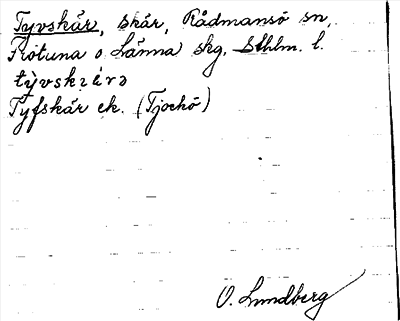 Tyvskär, skär, Rådmansö sn,
Frötuna o Länna skg, Sthlm. l.
tývskærə
Tyfskär ek. (Tjockö)
O. Lundberg